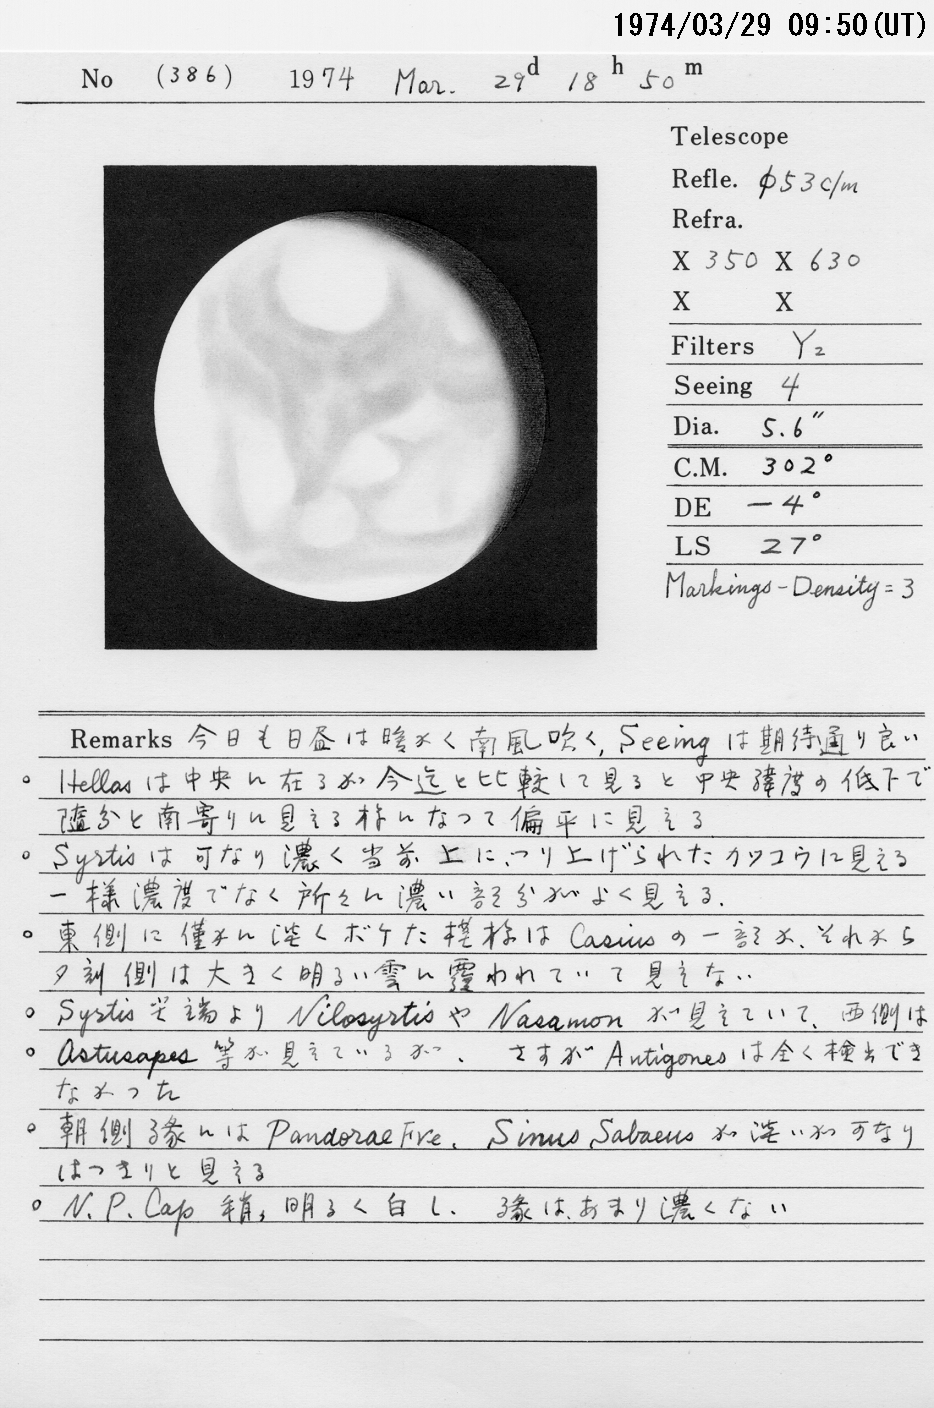 1974/03/29 09:50(UT)
No (386) 1974 Mar. 29d 18h 50m
Telescope
Refle. φ53c/m
Refra.
X 350 X 630
X X
Filters Y2
Seeing 4
Dia. 5.6"
C.M. 302°
DE -4°
LS 27°
Markings-Density=3
Remarks 今日も日昼は暖かく南風吹く, Seeingは期待通り良い
○ Hellasは中央に在るが今迄と比較して見ると中央緯度の低下で
随分と南寄りに見える様になって偏平に見える
○ Syrtisは可なり濃く当然上に、つり上げられたカッコウに見える
一様濃度でなく所々に濃い部分がよく見える.
○ 東側に僅かに淡くボケた模様はCasiusの一部か、それから
夕刻側は大きく明るい雲に覆われていて見えない
○ Syrtis尖端よりNilosyrtisやNasamonが見えていて、西側は
○ Astusapes等が見えているが、さすがAntigonesは全く検出でき
なかった
○ 朝側縁にはPandorae Fre. Sinus Sabaeusが淡いが可なり
はっきりと見える
○ N.P.Cap 稍々明るく白し. 縁は、あまり濃くない